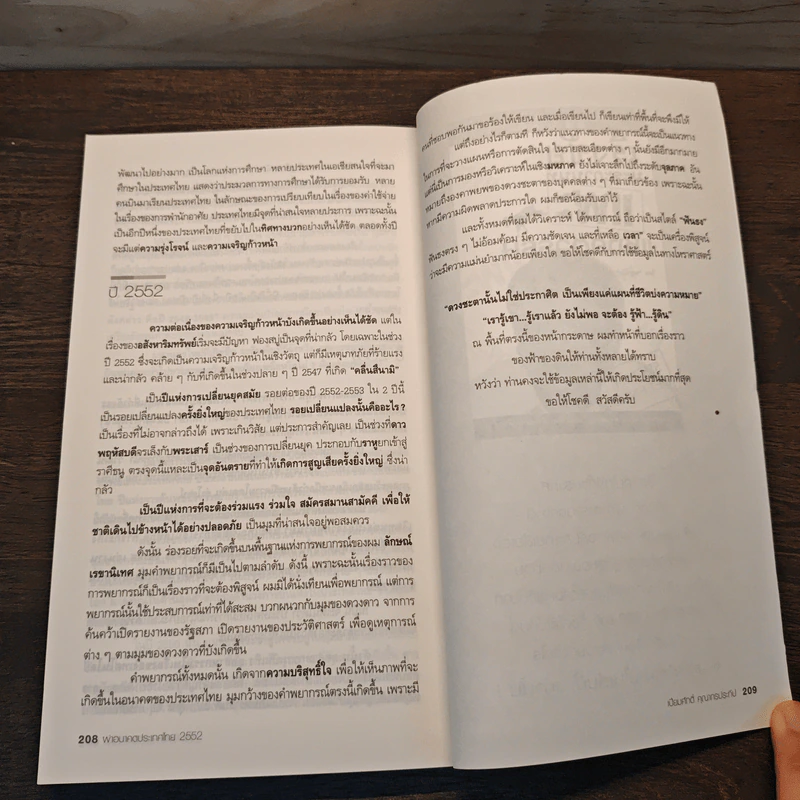 พัฒนาไปอย่างมาก เป็นโลกแห่งการศึกษา หลายประเทศในเอเชียสนใจที่จะมา
ศึกษาในประเทศไทย แสดงว่าประมวลการทางการศึกษาได้รับการยอมรับ หลาย
คนบินมาเรียนประเทศไทย ในลักษณะของการเปรียบเทียบในเรื่องของค่าใช้จ่าย
ในเรื่องของการพำนักอาศัย ประเทศไทยมีจุดที่น่าสนใจหลายประการ เพราะฉะนั้น
เป็นอีกปีหนึ่งของประเทศไทยที่ขยับไปในทิศทางบวกอย่างเห็นได้ชัด ตลอดทั้งปี
จะมีแต่ความรุ่งโรจน์ และความเจริญก้าวหน้า
ปี 2552
ความต่อเนื่องของความเจริญก้าวหน้าบังเกิดขึ้นอย่างเห็นได้ชัด แต่ใน
เรื่องของอสังหาริมทรัพย์เริ่มจะมีปัญหา ฟองสบู่เป็นจุดที่น่ากลัว โดยเฉพาะในช่วง
ปี 2552 ซึ่งจะเกิดเป็นความเจริญก้าวหน้าในเชิงวัตถุ แต่ก็มีเหตุเภทภัยที่ร้ายแรง
และน่ากลัว คล้าย ๆ กับที่เกิดขึ้นในช่วงปลาย ๆ ปี 2547 ที่เกิด "คลื่นสึนามิ"
เป็นปีแห่งการเปลี่ยนยุคสมัย รอยต่อของปี 2552-2553 ใน 2 ปีนี้
เป็นรอยเปลี่ยนแปลงครั้งยิ่งใหญ่ของประเทศไทย รอยเปลี่ยนแปลงนั้นคืออะไร?
เป็นเรื่องที่ไม่อาจกล่าวถึงได้ เพราะเกินวิสัย แต่ประการสำคัญเลย เป็นช่วงที่ดาว
พฤหัสบดีจรเล็งกับพระเสาร์ เป็นช่วงของการเปลี่ยนยุค ประกอบกับราหูยกเข้าสู่
ราศีธนู ตรงจุดนี้แหละเป็นจุดอันตรายที่ทำให้เกิดการสูญเสียครั้งยิ่งใหญ่ ซึ่งน่า
กลัว
เป็นปีแห่งการที่จะต้องร่วมแรง ร่วมใจ สมัครสมานสามัคคี เพื่อให้
ชาติเดินไปข้างหน้าได้อย่างปลอดภัย เป็นมุมที่น่าสนใจอยู่พอสมควร
ดังนั้น ร่องรอยที่จะเกิดขึ้นบนพื้นฐานแห่งการพยากรณ์ของผม ลักษณ์
เรขานิเทศ มุมคำพยากรณ์ก็มีเป็นไปตามลำดับ ดังนี้ เพราะฉะนั้นเรื่องราวของ
การพยากรณ์ก็เป็นเรื่องราวที่จะต้องพิสูจน์ ผมมิได้นั่งเทียนเพื่อพยากรณ์ แต่การ
พยากรณ์นั้นใช้ประสบการณ์เท่าที่ได้สะสม บวกผนวกกับมุมของดวงดาว จากการ
ค้นคว้าเปิดรายงานของรัฐสภา เปิดรายงานของประวัติศาสตร์ เพื่อดูเหตุการณ์
ต่าง ๆ ตามมุมของดวงดาวที่บังเกิดขึ้น
คำพยากรณ์ทั้งหมดนั้น เกิดจากความบริสุทธิ์ใจ เพื่อให้เห็นภาพที่จะ
เกิดขึ้นในอนาคตของประเทศไทย มุมกว้างของคำพยากรณ์ตรงนี้เกิดขึ้น เพราะมี
208 ผ่าอนาคตประเทศไทย 2552
คนที่ชอบพอกันมาขอร้องให้เขียน และเมื่อเขียนไป ก็เขียนเท่าที่พื้นที่จะพึงมีให้
แต่ถึงอย่างไรก็ตามที ก็หวังว่าแนวทางของคำพยากรณ์นี้จะเป็นแนวทาง
ในการที่จะวางแผนหรือการตัดสินใจ ในรายละเอียดต่าง ๆ นั้นยังมีอีกมากมาย
แต่นี่เป็นการมองหรือวิเคราะห์ในเชิงมหภาค ยังไม่เจาะลึกไปถึงระดับจุลภาค อัน
หมายถึงองคาพยพของดวงชะตาของบุคคลต่าง ๆ ที่มาเกี่ยวข้อง เพราะฉะนั้น
หากมีความผิดพลาดประการใด ผมก็ขอน้อมรับเอาไว้
และทั้งหมดที่ผมได้วิเคราะห์ ได้พยากรณ์ ถือว่าเป็นสไตล์ "ฟันธง"
ฟันธงตรง ๆ ไม่อ้อมค้อม มีความชัดเจน และที่เหลือ เวลา" จะเป็นเครื่องพิสูจน์
ว่าจะมีความแม่นยำมากน้อยเพียงใด ขอให้โชคดีกับการใช้ข้อมูลในทางโหราศาสตร์
"ดวงชะตานั้นไม่ใช่ประกาศิต เป็นเพียงแค่แผนที่ชีวิตบ่งความหมาย"
"เรารู้เขา...รู้เราแล้ว ยังไม่พอ จะต้อง รู้ฟ้า...รู้ดิน"
ณ พื้นที่ตรงนี้ของหน้ากระดาษ ผมทำหน้าที่บอกเรื่องราว
ของฟ้าของดินให้ท่านทั้งหลายได้ทราบ
หวังว่า ท่านคงจะใช้ข้อมูลเหล่านี้ให้เกิดประโยชน์มากที่สุด
ขอให้โชคดี สวัสดีครับ
เปี่ยมศักดิ์ คุณากรประทีป 209